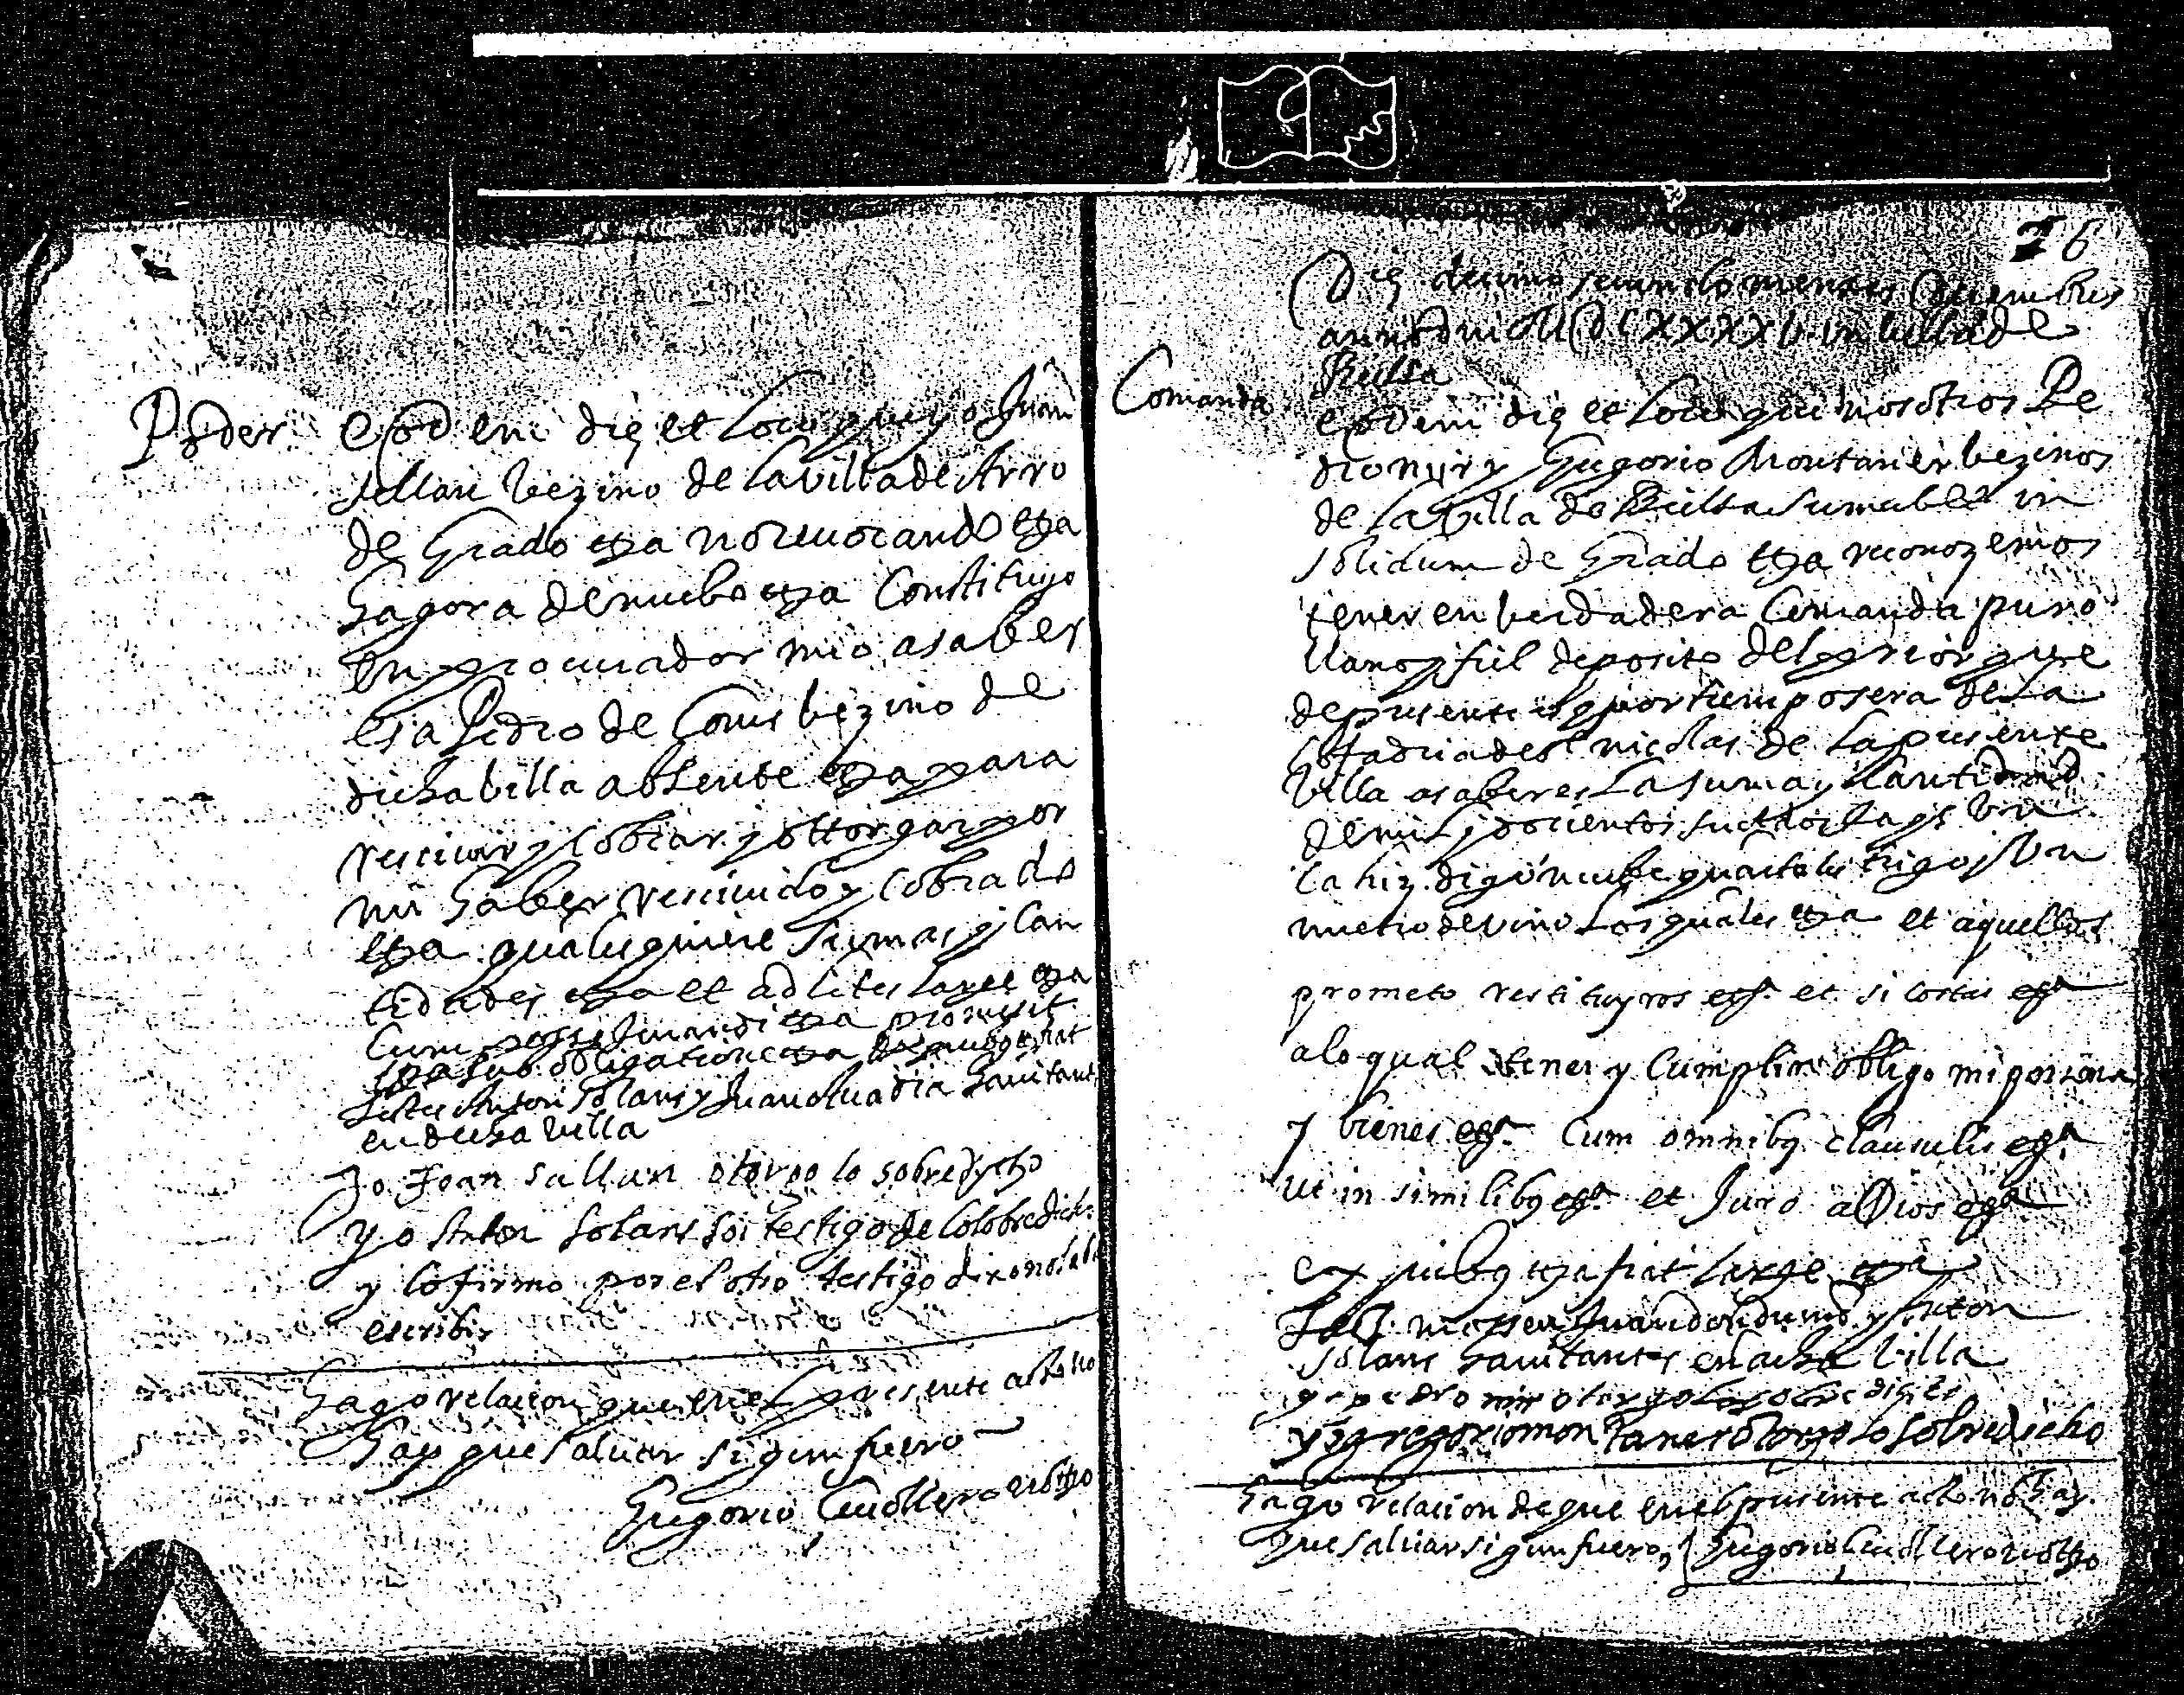 Poder
Eodem die et loco que yo Juan
sallan bezino de la villa de Arro
de Grado etza no reuocando etza
hagora de nuebo etza Constituyo
en procurador mio asaber
es a Pedro de Coms bezino de
dicha billa absente etza para
resciuir y cobrar y ottorgar por
mi haber resciuido y cobrado
etza qualesquiere sumas y can
tidades etza et ad lites large etza
Cum posse Jurandi etza promisit
etza sub obligatione etza fiat
Testes Anton Solans y Juan hauitant
en dicha villa
Jo Joan sallan otorgo lo sobredycho
yo Anton Solans soi testigo de lo sobredicho
y lo firmo por el otro testigo dixo no sabia
escribir
Hago relacion que en el presente acto no
hay que saluar sigun fuero
Gregorio not
26
Die decimo secundo mensis
anni dni MDCXXXXV in billa de
Comanda
eodem die et loco que nosotros Pe
dro mir y Gregorio Montaner bezinos
de la billa de simul et in
solidum de Grado etza reconozemos
tener en berdadera Comanda puro
llano y fiel deposito del prior que
de presente es y por tiempo sera de la
Coffadria de st nicolas de la presente
villa asaber es la suma y Cantidad
de mil y docientos sueldos
cahiz digo nuebe quartales trigo y Un
nietro de vino los quales etza et aquellos
prometo restituyros etc et si costas etc
alo qual tener y Cumplir obligo mi persona
y bienes etc Cum omnibq clausulis etc
ut in similibq etc et Juro a Dios etc
ex quibq etza fiat large etza
Tes mossen Juan y Anton
Solans hauitantes en dicha billa
yo pedro mir otorgo lo sobre dicho
yo gregorio montaner otorgo lo sobredicho
Hago relacion de que en el presente acto no hay
que saluar sigun fuero Gregorio not